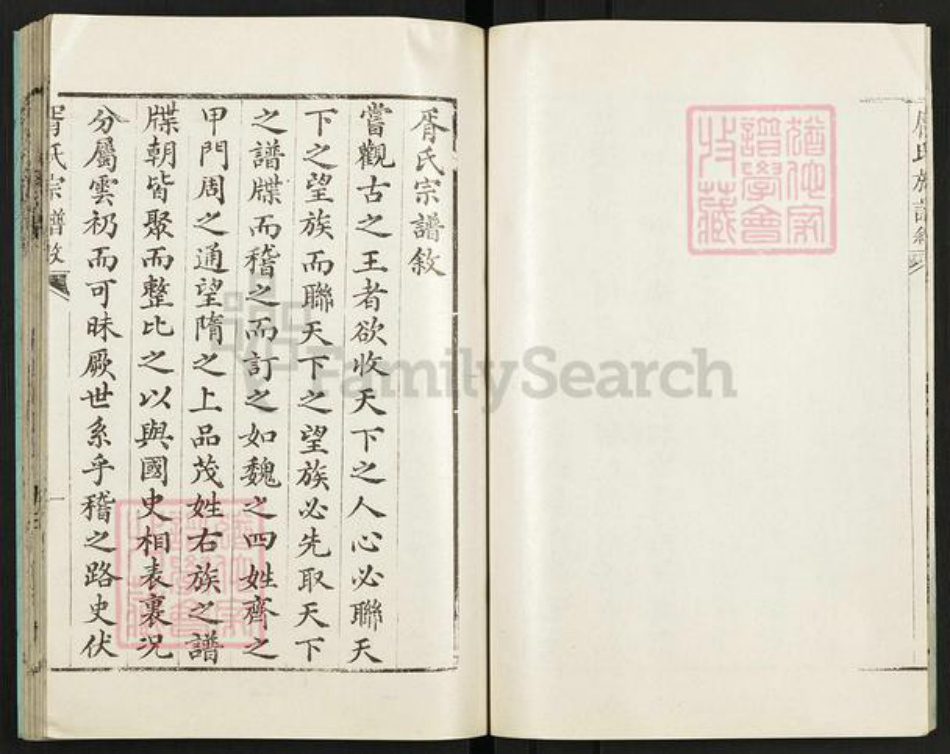 胥氏宗譜敘
嘗觀古之王者欲收天下之人心必聯天
下之望族而聯天下之望族必先取天下
之譜牒而稽之而訂之如魏之四姓齊之
甲門周之通望隋之上品茂姓右族之譜
牒朝皆聚而整比之以與國史相表裏况
分屬雲礽而可昧厥世系乎稽之路史伏
胥氏宗譜敘
一
FamilySearch
譜學會
收藏